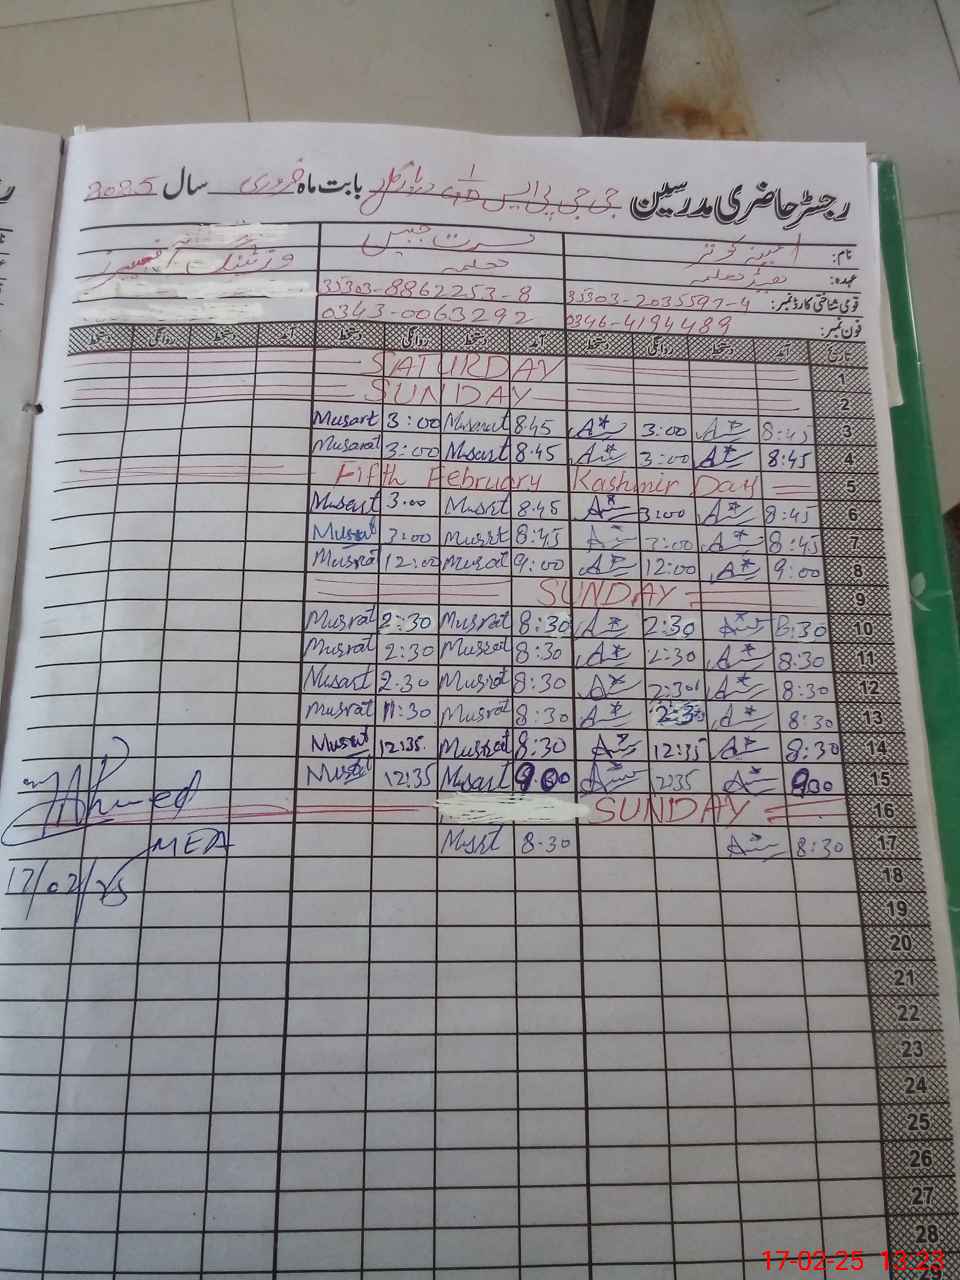 رجسٹر حاضری مدرسین جی جی پی ایس بابت ماہ فروری سال 2025
نام: امینہ کوثر مسرت جبیں وزٹنگ آفیسرز
عہدہ: ہیڈ معلمہ معلمہ
قومی شناختی کارڈ نمبر: 35303-2035597-4 35303-8862253-8
فون نمبر: 0346-4194489 0343-0063292
تاریخ آمد دستخط روانگی دستخط آمد دستخط روانگی دستخط آمد دستخط روانگی دستخط
SATURDAY 1
SUNDAY 2
Musart 3:00 Musarat 8.45 A* 3:00 A* 8:45 3
Musarat 3:00 Musart 8.45 A* 3:00 A* 8:45 4
Fifth February Kashmir Day 5
Musart 3.00 Musrt 8.45 A* 3:00 A* 8:45 6
Musrat 3:00 Musrt 8:45 3:00 A* 8:45 7
Musrat 12:00 Musrat 9:00 A* 12:00 A* 9:00 8
SUNDAY 9
Musrat 2:30 Musrat 8:30 A* 2:30 8:30 10
Musrat 2:30 Musrat 8:30 A* 2:30 A* 8:30 11
Musart 2.30 Musrat 8:30 A* 2:30 A* 8:30 12
Musrat 11:30 Musrat 8:30 A* 2:30 A* 8:30 13
Musrat 12:35 Musrat 8:30 12:35 A* 8:30 14
Musrat 12:35 Musart 9.00 12:35 A* 9:30 15
SUNDAY 16
Musrt 8.30 8:30 17
Ahmed
MEA
17/02/25
18
19
20
21
22
23
24
25
26
27
28
29
17-02-25 13:23